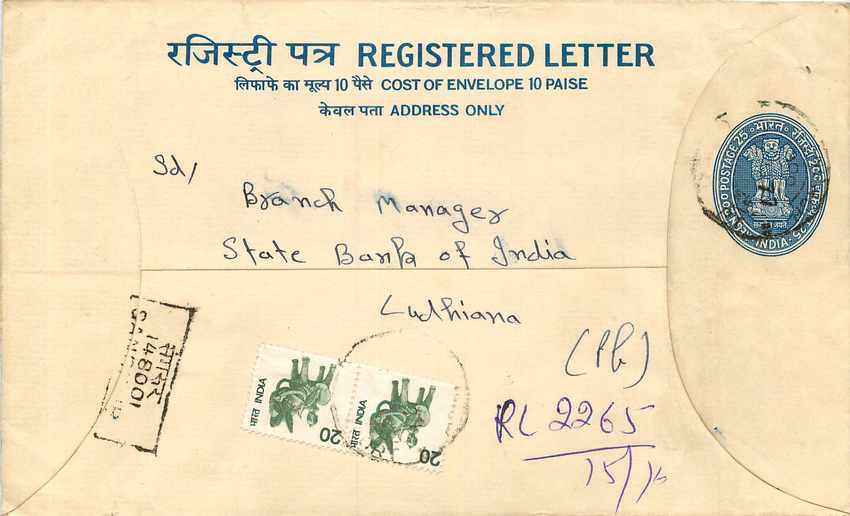 रजिस्ट्री पत्र REGISTERED LETTER
लिफाफे का मूल्य 10 पैसे COST OF ENVELOPE 10 PAISE
केवल पता ADDRESS ONLY
Sd/
Branch Manager
State Bank of India
Ludhiana
(Pb)
RL 2265
POSTAGE 25 भारत रजिस्ट्री
INDIA
148001
भारत INDIA 20
भारत INDIA 20